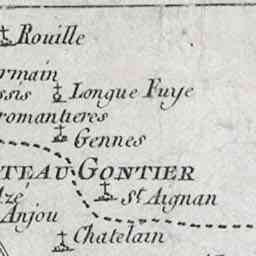 Rouille
rmain
ssis Longue Fuye
romantieres
Gennes
TEAU GONTIER
Azé St Aignan
Anjou
Chatelain